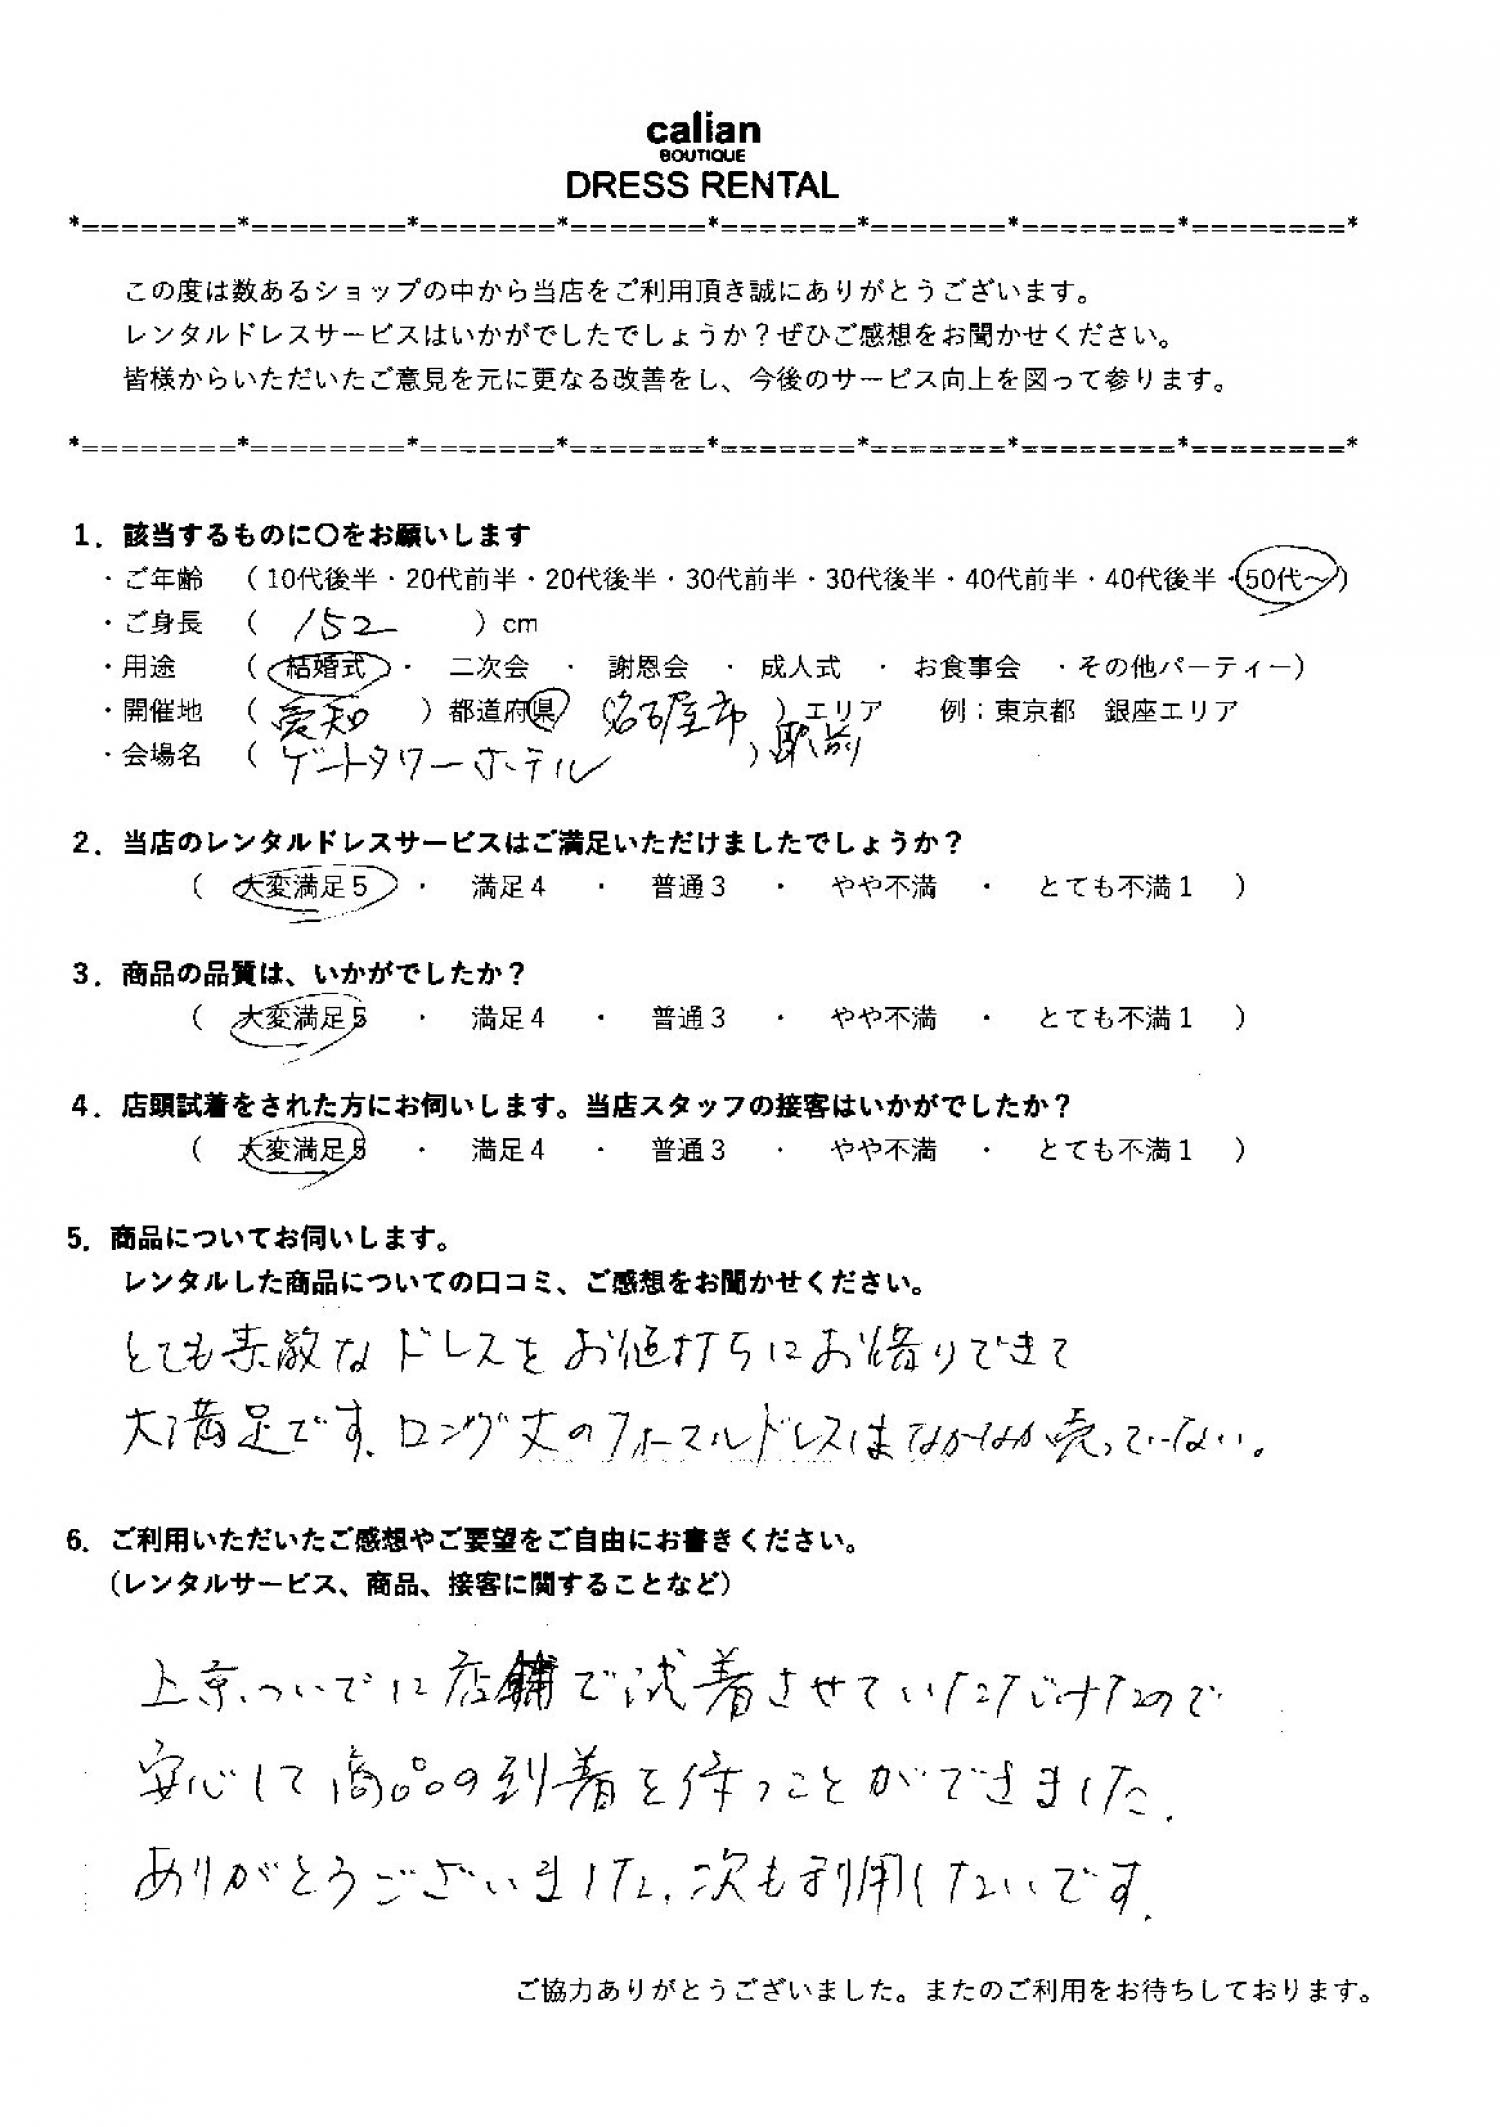 calian
BOUTIQUE
DRESS RENTAL
*========*========*=======*=======*=======*=======*========*========*
この度は数あるショップの中から当店をご利用頂き誠にありがとうございます。
レンタルドレスサービスはいかがでしたでしょうか？ぜひご感想をお聞かせください。
皆様からいただいたご意見を元に更なる改善をし、今後のサービス向上を図って参ります。
*========*========*=======*=======*=======*=======*========*========*
１．該当するものに〇をお願いします
・ご年齢　（10代後半・20代前半・20代後半・30代前半・30代後半・40代前半・40代後半・50代～）
・ご身長　（ 152 ）cm
・用途　（ 結婚式 ・ 二次会 ・ 謝恩会 ・ 成人式 ・ お食事会 ・その他パーティー）
・開催地　（ 愛知 ）都道府県 （名古屋市駅前）エリア　例：東京都　銀座エリア
・会場名　（ ゲートタワーホテル ）
２．当店のレンタルドレスサービスはご満足いただけましたでしょうか？
（ 大変満足５ ・ 満足４ ・ 普通３ ・ やや不満 ・ とても不満１ ）
３．商品の品質は、いかがでしたか？
（ 大変満足５ ・ 満足４ ・ 普通３ ・ やや不満 ・ とても不満１ ）
４．店頭試着をされた方にお伺いします。当店スタッフの接客はいかがでしたか？
（ 大変満足５ ・ 満足４ ・ 普通３ ・ やや不満 ・ とても不満１ ）
5．商品についてお伺いします。
レンタルした商品についての口コミ、ご感想をお聞かせください。
とても素敵なドレスをお値打ちにお借りできて
大満足です。ロング丈のフォーマルドレスはなかなか売っていない。
6．ご利用いただいたご感想やご要望をご自由にお書きください。
（レンタルサービス、商品、接客に関することなど）
上京ついでに店舗で試着させていただけたので
安心して商品の到着を待つことができました。
ありがとうございました。次も利用したいです。
ご協力ありがとうございました。またのご利用をお待ちしております。